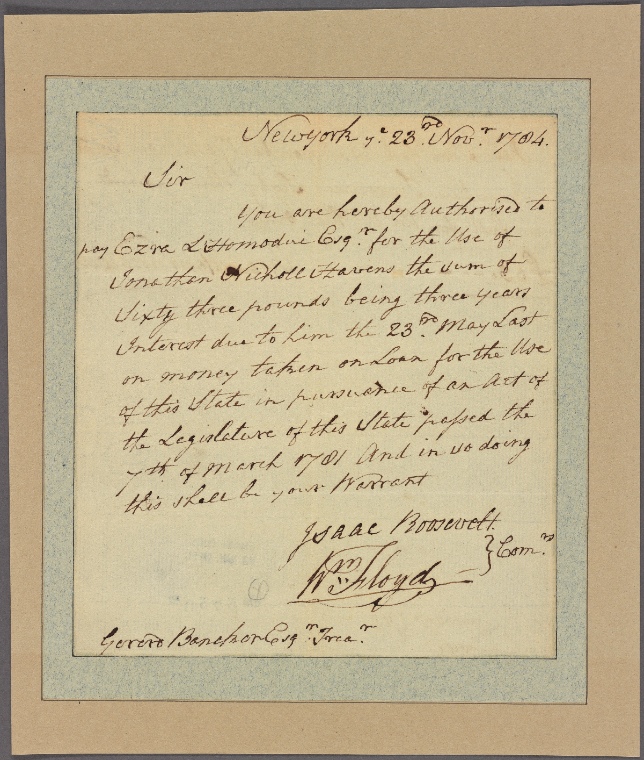 Newyork yᵉ 23ʳᵈ Novʳ 1784.
Sir
you are hereby Authorised to
pay Ezra L'Homodiue Esqʳ for the Use of
Jonathan Nicholl Havens the sum of
Sixty three pounds being three years
Interest due to him the 23ʳᵈ May Last
on money taken on Loan for the Use
of this State in pursuance of an Act of
the Legislature of this State passed the
7ᵗʰ of March 1781 And in so doing
this shall be your Warrant
Isaac Roosevelt
Wᵐ Floyd } Comʳˢ
Gerard Bancker Esqʳ Treaʳ